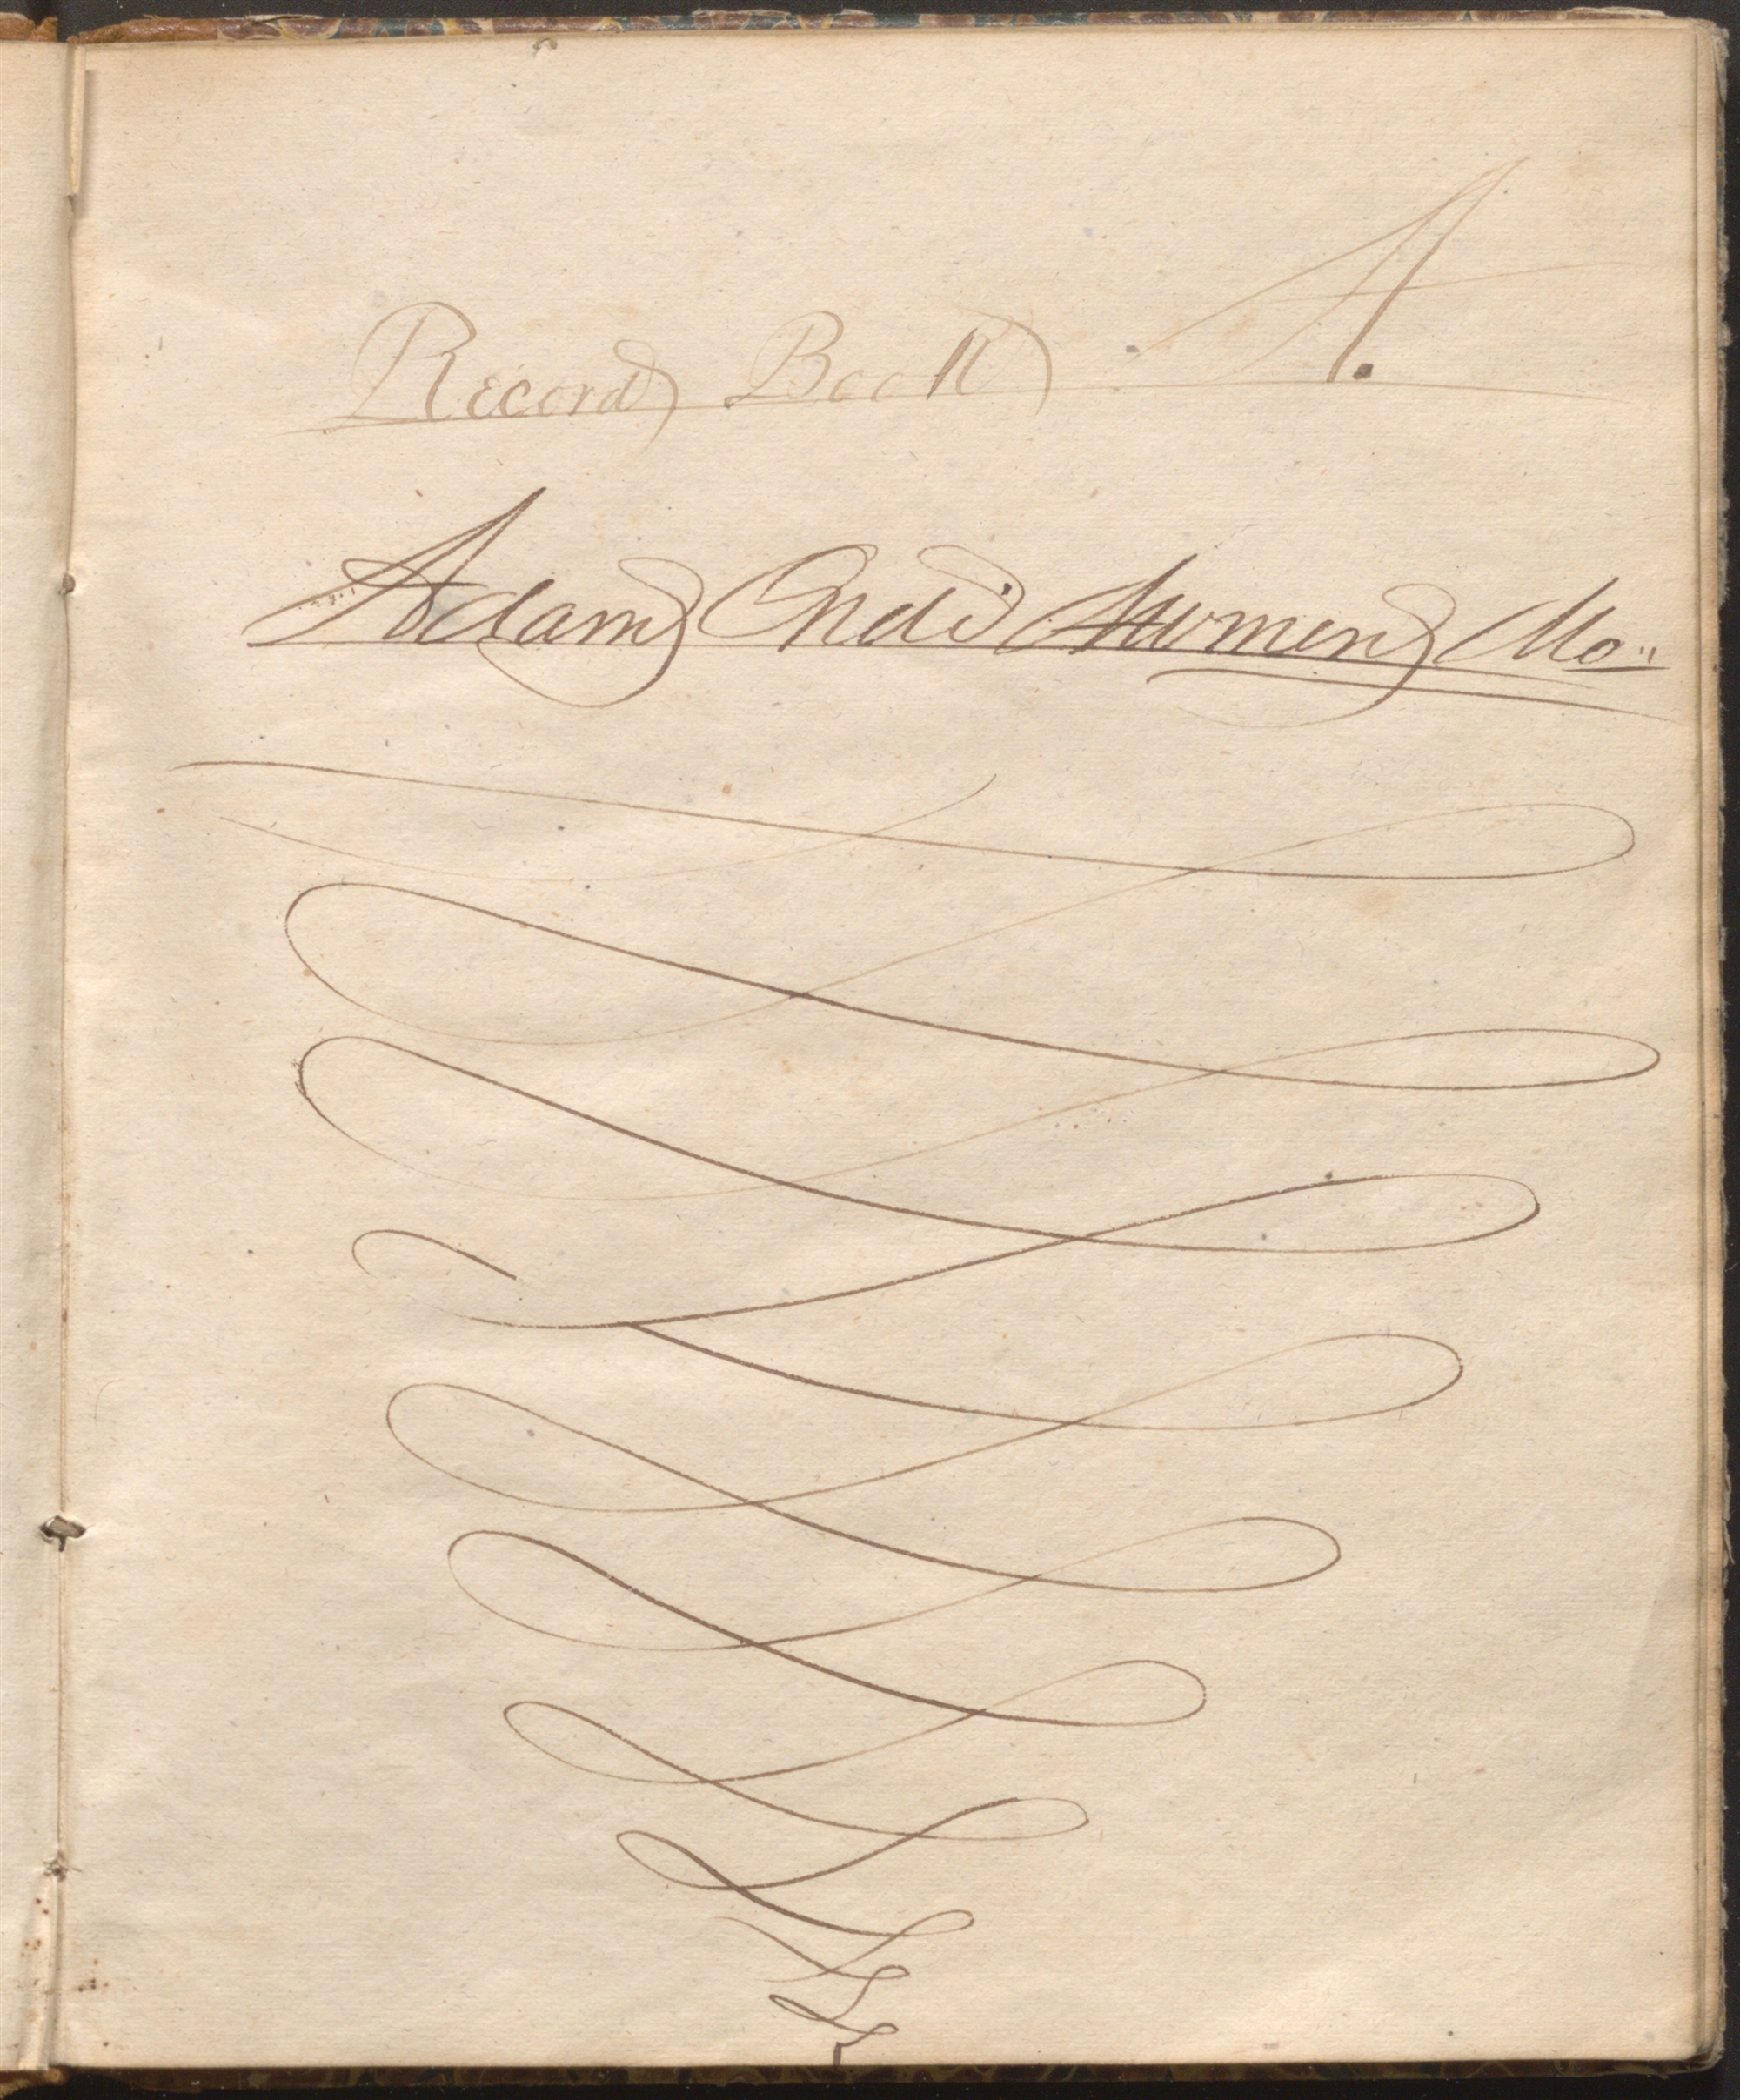 Record Book A.
Adam Ondi Awmen Mo"